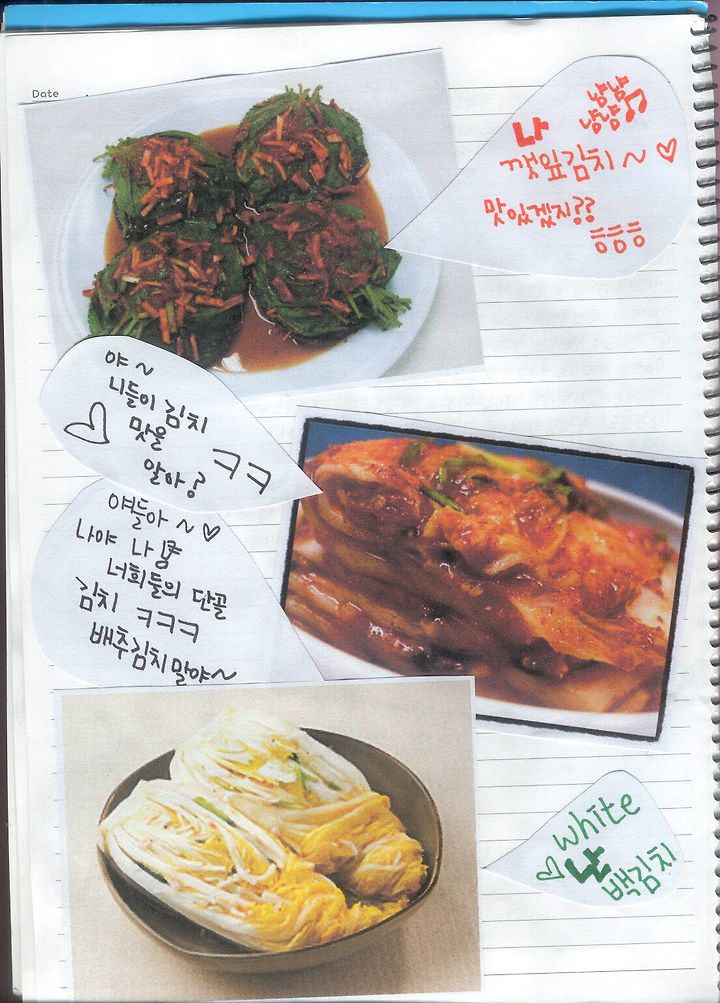 Date
냠냠
냠냠♫
나
깻잎김치~♡
맛있겠지??
ㅎㅎㅎ
야~
니들이 김치
맛을
알아?
ㅋㅋ
얘들아~♡
나야 나
너희들의 단골
김치 ㅋㅋㅋ
배추김치말야~
white
♡난
백김치